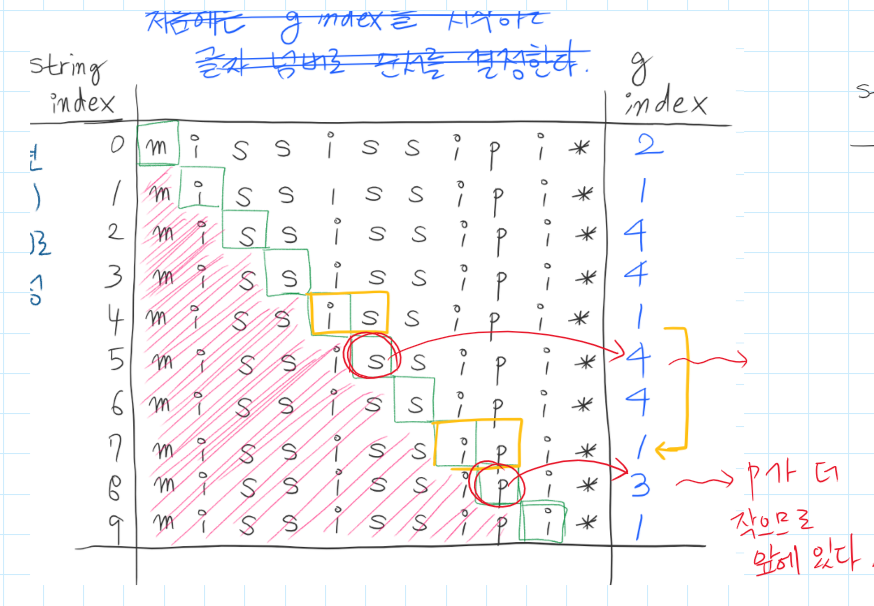 처음에는 g index를 시작하고
글자 넘버로 순서를 결정한다.
string index
g index
0 m i s s i s s i p i * 2
1 m i s s i s s i p i * 1
2 m i s s i s s i p i * 4
3 m i s s i s s i p i * 4
4 m i s s i s s i p i * 1
5 m i s s i s s i p i * 4
6 m i s s i s s i p i * 4
7 m i s s i s s i p i * 1
8 m i s s i s s i p i * 3
9 m i s s i s s i p i * 1
p가 더
작으므로
앞에 있다.